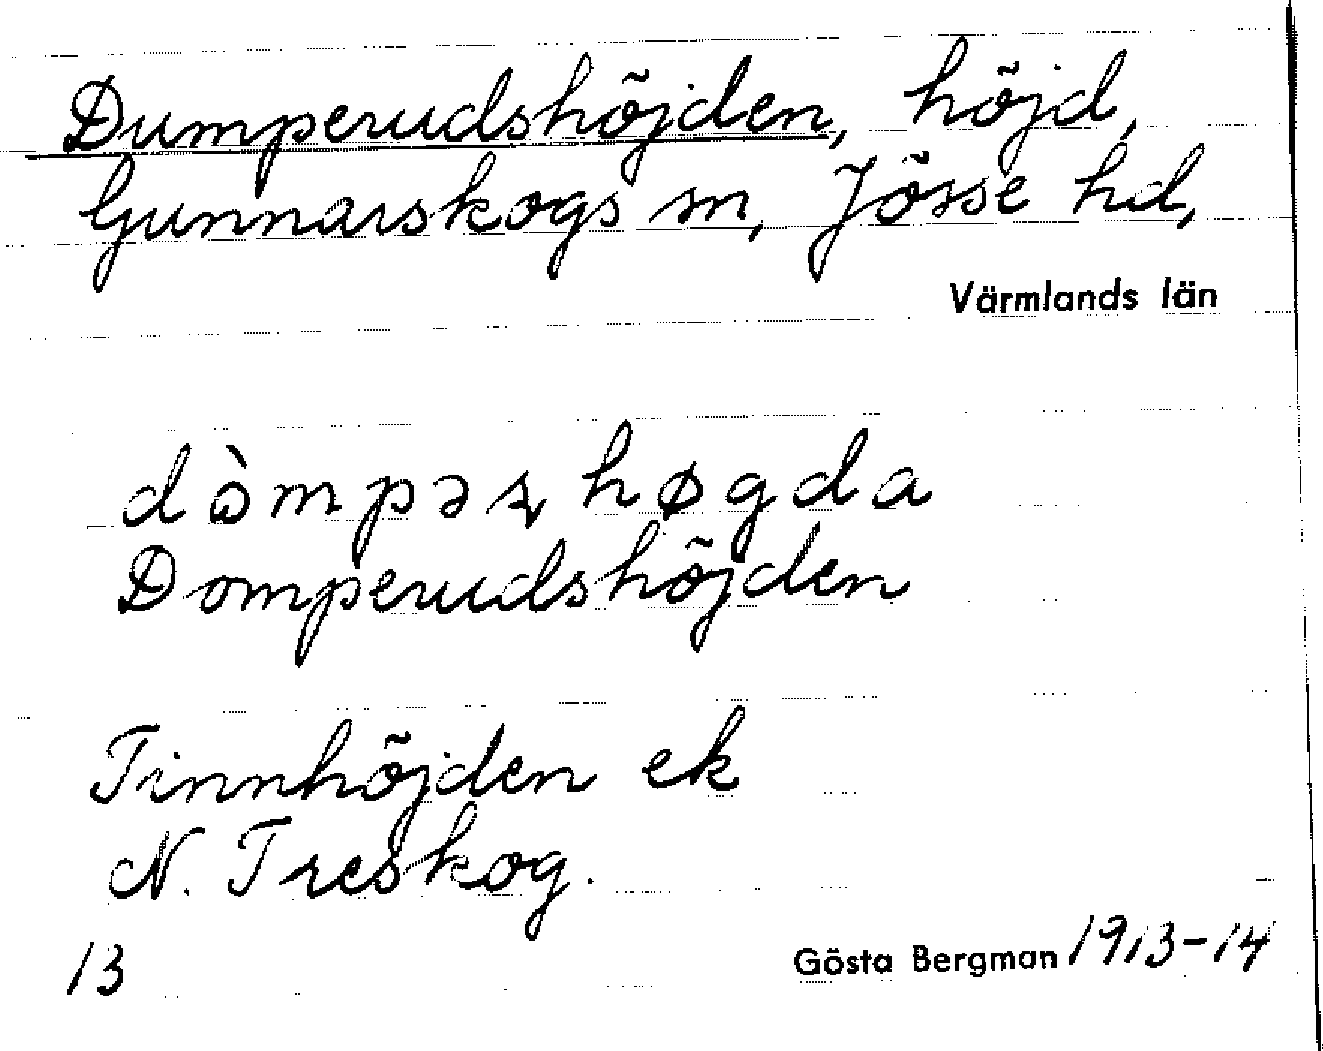 Dumperudshöjden, höjd,
Gunnarskogs sn, Jösse hd,
Värmlands län
dòmpəꞩhøgda
Domperudshöjden
Finnhöjden ek
N. Treskog.
13 Gösta Bergman 1913-14